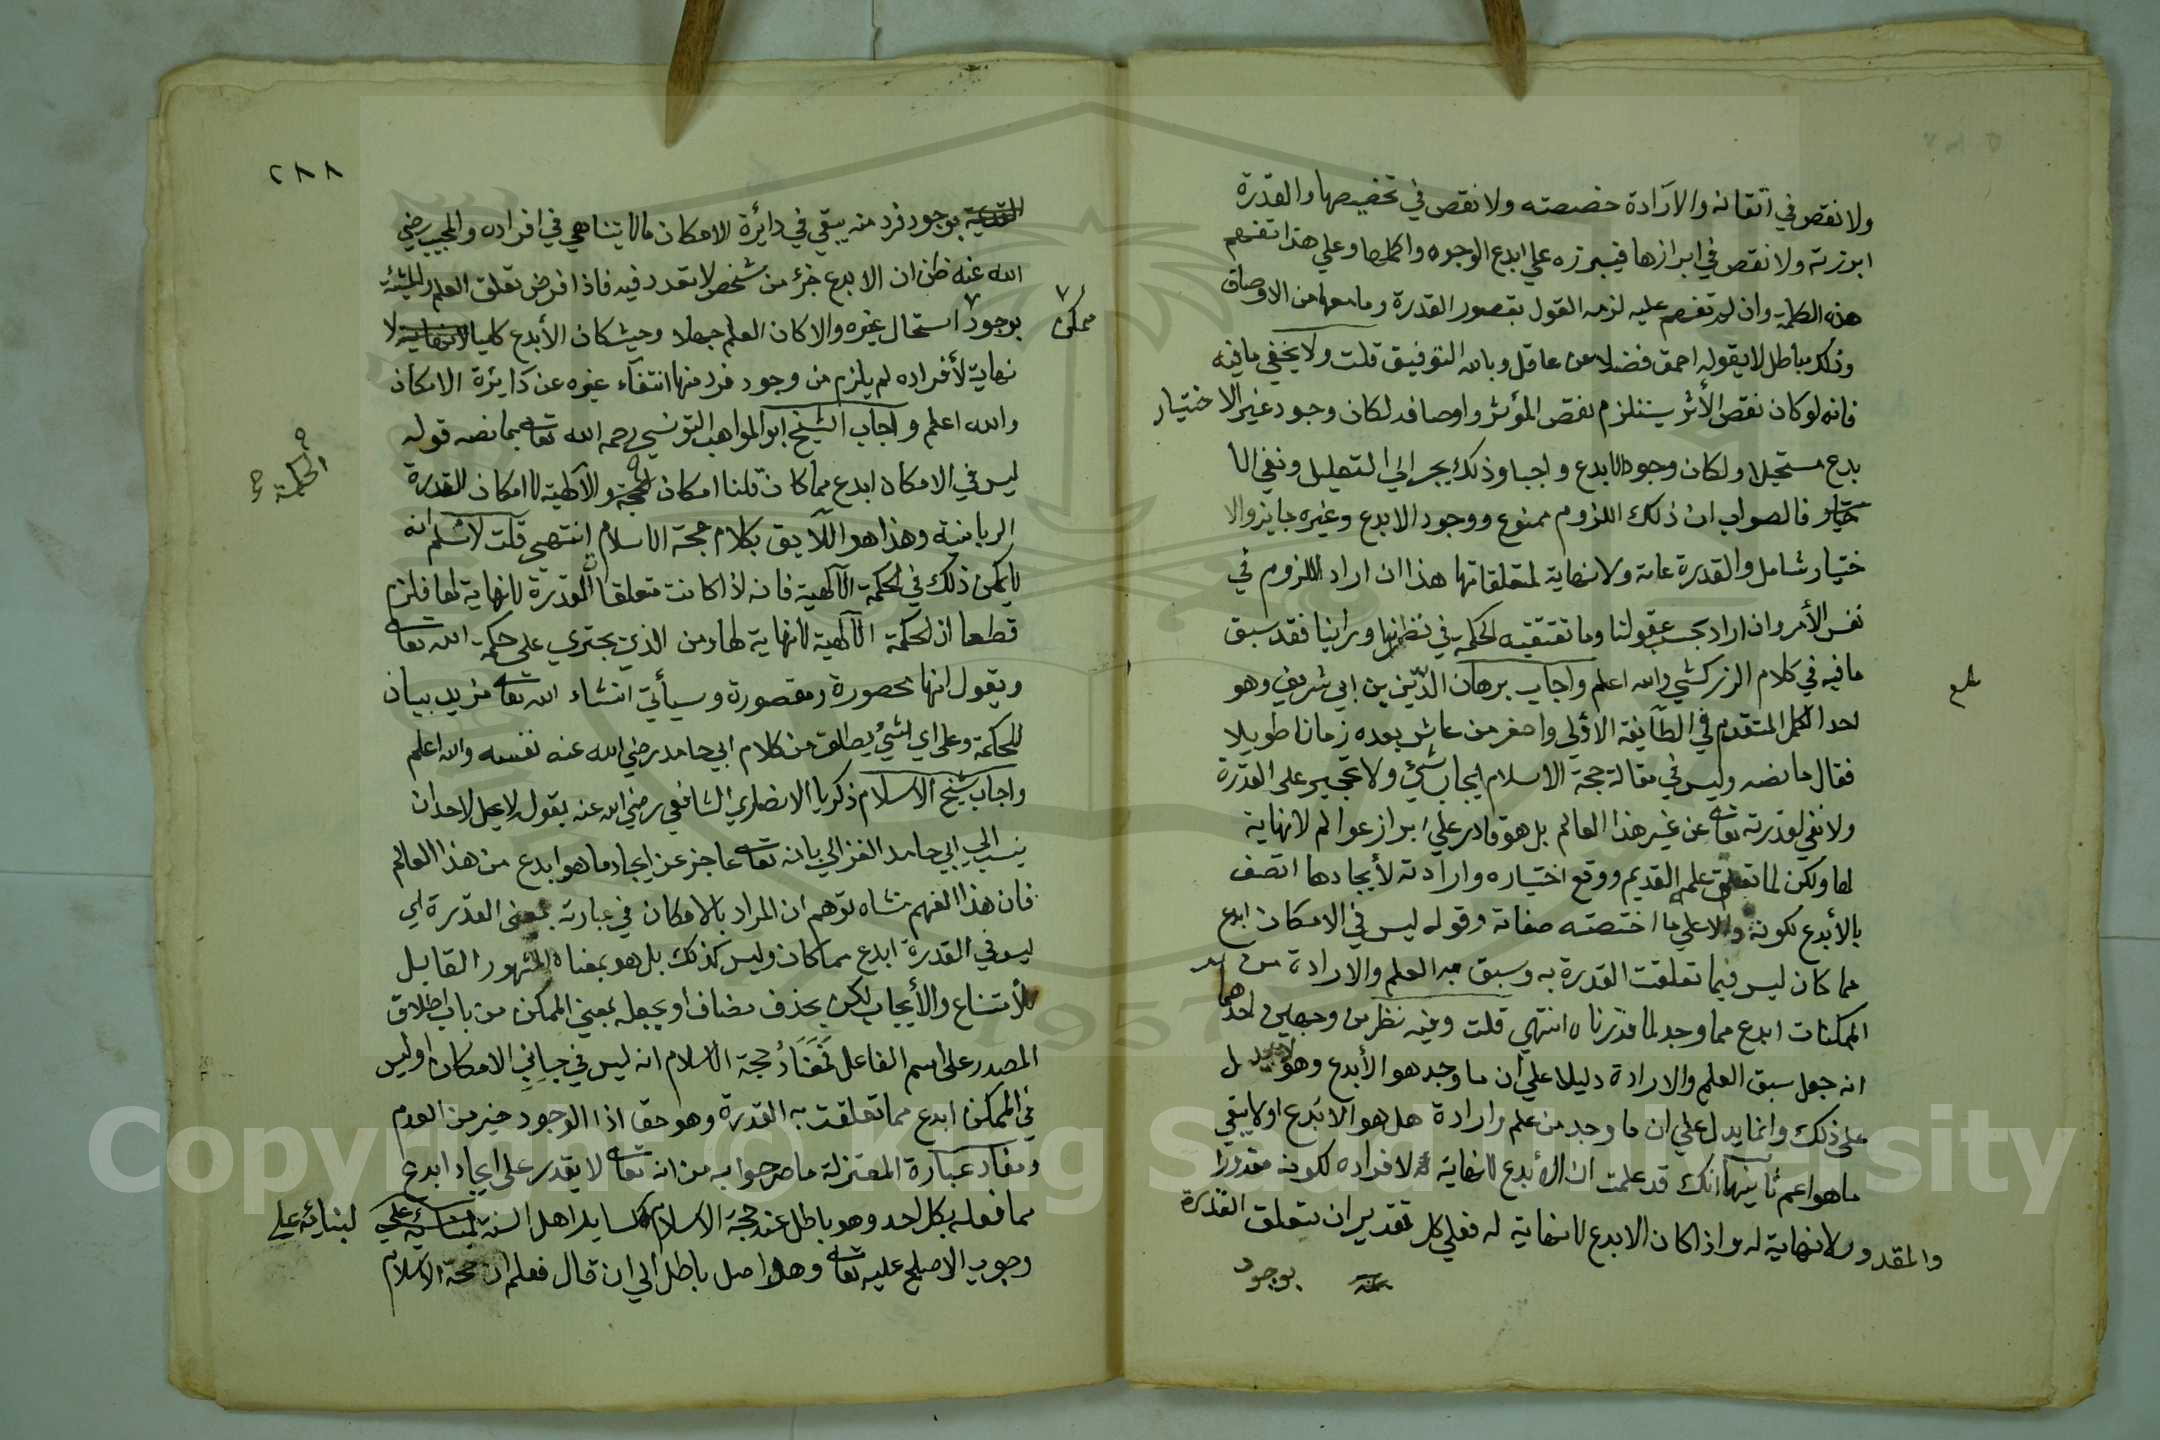 ولا نقص في اتقانه والارادة خصصته ولا نقص في تخصيصها والقدرة
ابرزته ولا نقص في ابرازها فيبرزه علي ابدع الوجوه واكملها وعلي هذا تفهم
هذه الكلمة وان لم تفهم عليه لزمه القول بقصور القدرة وما معها من الاوصاف
وذلك باطل لا يقوله احمق فضلا عن عاقل وبالله التوفيق قلت ولا يخفي ما فيه
فانه لو كان نقص الأثر يستلزم نقص المؤثر واوصافه لكان وجود غير الا ختيار
بدع مستحيلا ولكان وجود الابدع واجبا وذلك يجر إلي التعليل ونفي الا
ختيار فالصواب ان ذلك اللزوم ممنوع ووجود الابدع وغيره جايز والا
ختيار شامل والقدرة عامة ولا نهاية لمتعلقاتها هذا ان اراد اللزوم في
نفس الأمر وان اراد بحسب عقولنا وما تقتضيه الحكمة في نظرنا وراينا فقد سبق
ما فيه في كلام الزركشي والله اعلم واجاب برهان الدّين بن ابي شريف وهو
احد الكمل المتقدم في الطآيفة الاولي واصغر من عاش بعده زمانا طويلا
فقال ما نصه وليس في مقالة حجة الاسلام ايجاب شئ ولا تحجير على القدرة
ولا نفي لقدرته تعالى عن غير هذا العالم بل هو قادر علي ابراز عوالم لا نهاية
لها ولكن لما تعلق علمه القديم ووقع اختياره وارادته لأيجادها اتصف
بالأبدع لكونه دالا علي ما اختصته صفاته وقوله ليس في الامكان ابدع
مما كان ليس فيما تعلقت القدرة به وسبق به العلم والارادة من
الممكنات ابدع مما وجد لما قررناه انتهي قلت وفيه نظر من وجهين احدهما
انه جعل سبق العلم والارادة دليلا علي أن ما وجد هو الأبدع وهو لا يدل
على ذلك وانما يدل علي ان ما وجد من علم وارادة هل هو الابدع او لا يبقي
ما هو اعم ثانيهما انك قد علمت ان الأبدع لا نهاية لافراده لكونه مقدورا
والمقدور لا نهاية له واذا كان الابدع لا نهاية له فعلي كل تقدير ان تتعلق القدرة
بوجود
٢٨٨
القدرة بوجود فرد منه يبقي في دائرة الامكان مالا يتناهي في افراده والمجيب رضي
الله عنه ظن ان الابدع جزئ من شخص لا تعدد فيه فاذا فرض تعلق العلم والمشيئة
بوجوده استحال غيره والا كان العلم جهلا وحيث كان الأبدع كليا لانهاية لا
ممكن
نهاية لأفراده لم يلزم من وجود فرد منها انتفآء غيره عن دآيرة الامكان
والله اعلم واجاب الشيخ ابو المواهب التونسي رحمه الله تعالى بما نصه قوله
ليس في الامكان ابدع مما كان قلنا امكان الحجة والآلهية لا امكان القدرة
الحكمة صح
الربانية وهذا هو اللآيق بكلام حجة الاسلام انتهي قلت لا نسلم انه
لا يمكن ذلك في الحكمة الآلهية فانه اذا كانت متعلقات القدرة لا نهاية لها فلزم
قطعا ان الحكمة الآلهية لا نهاية لها ومن الذي يجتري على حكمة الله تعالى
ويقول انها محصورة ومقصورة وسيأتي انشاء الله تعالى مزيد بيان
للحكمة وعلي اي شئ يطلق من كلام ابي حامد رضي الله عنه نفسه والله اعلم
واجاب شيخ الاسلام زكريا الانصاري الشافعي رضي الله عنه بقوله لا يحل لاحد ان
ينسب الي ابي حامد الغزالي بانه تعالى عاجز عن ايجاد ما هو ابدع من هذا العالم
فان هذا الفهم منشاه توهم ان المراد بالامكان في عبارته بمعنى القدرة اي
ليس في القدرة ابدع مما كان وليس كذلك بل هو بمعناه المشهور القابل
للأمتناع والأيجاب لكن بحذف مضاف او يجعله بمعني الممكن من باب اطلاق
المصدر على اسم الفاعل فَمَفَادُ حجة الاسلام انه ليس في جانبي الامكان او ليس
في الممكن ابدع مما تعلقت به القدرة وهو حق اذ الوجود خير من العدم
ومفاد عبارة المعتزلة ما صرحوا به من انه تعالى لا يقدر على ايجاد ابدع
مما فعله بكل احد وهو باطل عند حجة الاسلام كساير اهل السنة لبنائه علي
وجوب الاصلح عليه تعالى وهو اصل باطل الي ان قال فعلم ان حجة الاسلام